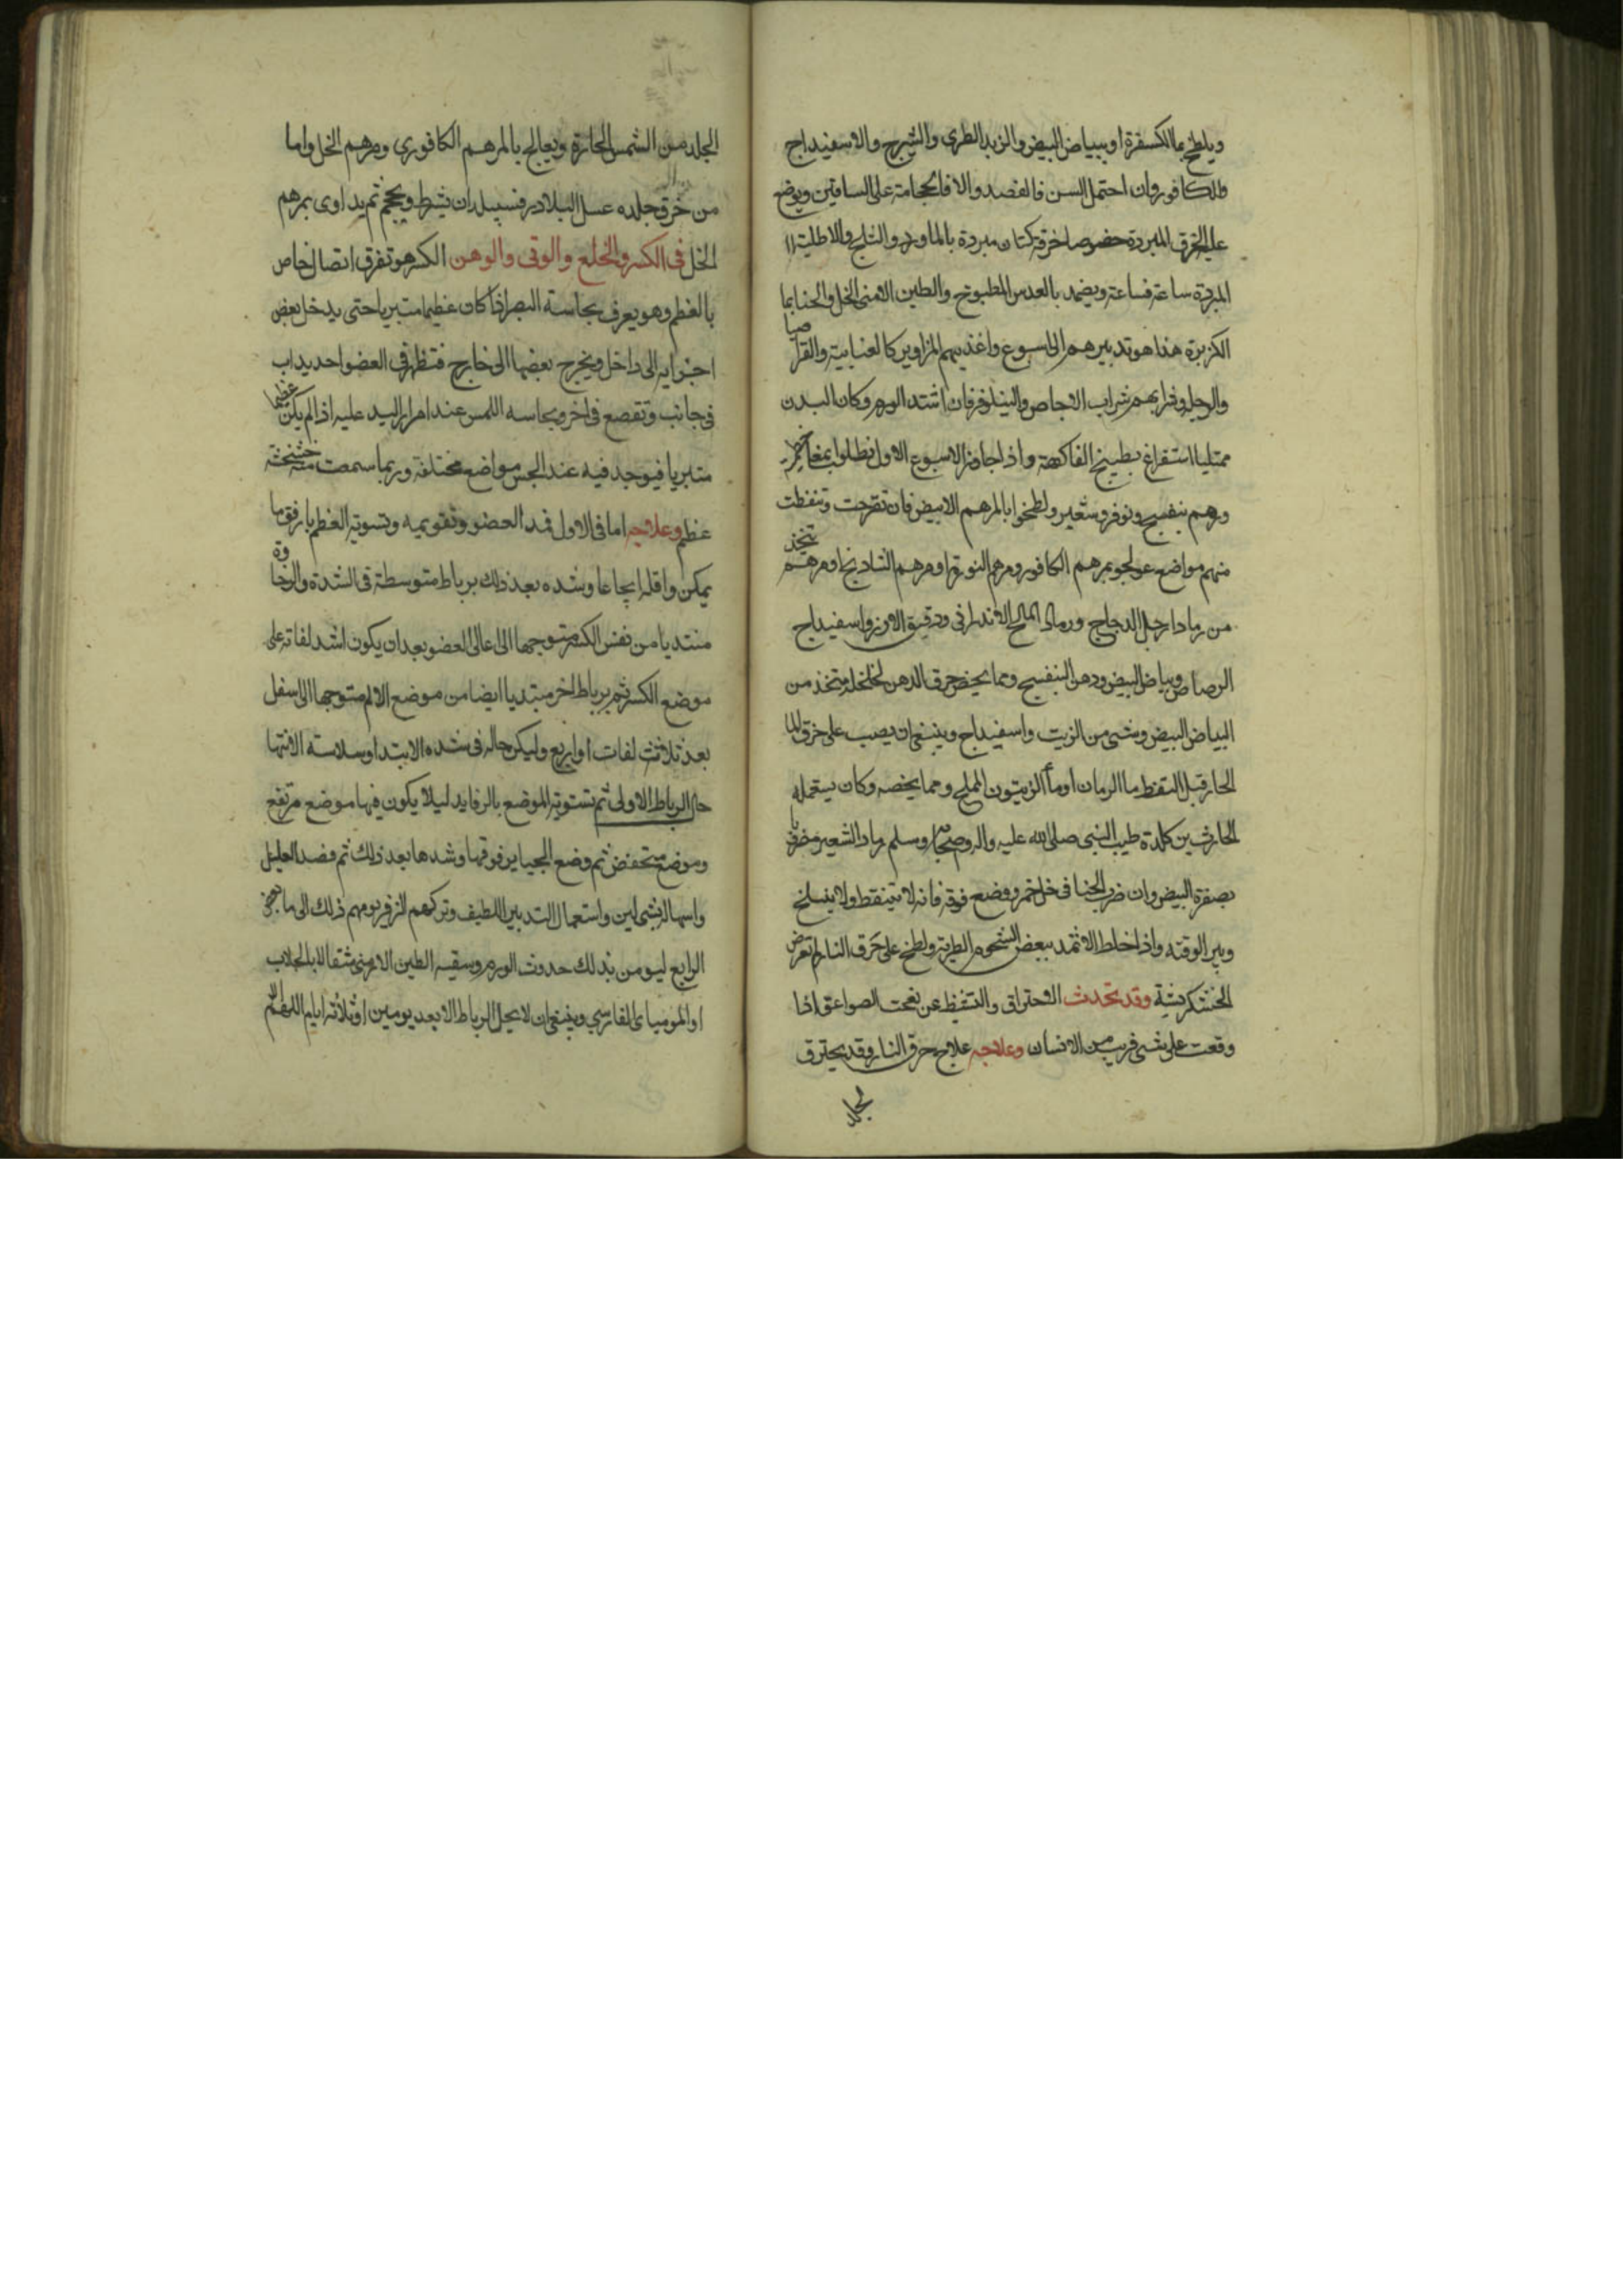 ويلطخ بما الكسفرة او ببياض البيض والزبد الطرى والشيرج والاسفيداج
والكافور وان احتمل السن فالفصد والا فالحجامة على الساقين ويوضع
عليه الخرق المبردة خصوصا خرقة كتان مبردة بالماورد والثلج والاطلية
المبردة ساعة فساعة ويضمد بالعدس المطبوخ والطين الارمنى الخل والحنا بما
الكزبرة هذا هو تدبيرهم الى اسبوع واغذيتهم المزاوير كالعنابية والقراصيا
والرجلة وشرابهم شراب الاجاص والنيلوفر فان اشتد الورم وكان البدن
ممتليا استفراغ بطبيخ الفاكهة واذا جاوز الاسبوع الاول نطلوا بمغا
ورهم بنفسج ونوفر وشعير ولطخوا بالمرهم الابيض فان تقرحت وتنفطت
منهم مواضع عولجو بمرهم الكافور ومرهم النورة او مرهم الشادنج او مرهم يتخذ
من رماد ارجل الدجاج ورماد الملح الاندرانى ودقيق الارز واسفيداج
الرصاص وبياض البيض ودهن البنفسج ومما يخص حرق الدهن لخلخلة متخذ من
البياض البيض وشى من الزيت واسفيداج وينبغى ان يصب على حرق الما
الحار قبل التنفط ما الرمان او ما الزيتون المملح ومما يخصه وكان يستعمله
الحارث بن كلدة طبيب النبى صلى الله عليه واله وصحبه وسلم رماد الشعير مضروبا
بصفرة البيض وان ضرب الحنا فى خل خمر ووضع فوقه فانه لا يتنفط ولا ينسلخ
ويبر الوقته واذا خلط الاثمد ببعض الشحوم الطرية ولطخ على حرق النار لم تعرض
الخشكريشة وقد تحدث الاحتراق والتنفيط عن نفحت الصواعق اذا
وقعت على شى قريب من الانسان وعلاجه علاج حرق النار وقد يحترق
الجلد من الشمس الحارة ويعالج بالمرهم الكافورى ومرهم الخل واما
من خرق جلده عسل البلادر فسبيله ان يشرط ويحجم ثم يداوى بمرهم
الخل فى الكسر والخلع والوثى والوهن الكسر هو تفرق اتصال خاص
بالعظم وهو يعرف بحاسة البصر اذا كان عظيما متبريا حتى يدخل بعض
اجزايه الى داخل ويخرج بعضها الى خارج فتظهر فى العضو احديداب
فى جانب وتقصع فى اخر وبحاسه اللمس عند امرار اليد عليه اذا لم يكن عظيما
متبريا فيوجد فيه عند الجس مواضع مختلفة وربما سمعت منه خشخشة
عظم وعلاجه اما فى الاول فمد العضو وتقويمه وتسوية العظم بارفق ما
يمكن واقله ايجاعا وشده بعد ذلك برباط متوسطة فى الشدة والرخاوة
مبتديا من نفس الكسر متوجها الى اعالى العضو بعد ان يكون اشد لفاته على
موضع الكسر ثم برباط اخر مبتديا ايضا من موضع الالم متوجها الى اسفل
بعد ثلاثث لفات او اربع وليكن حاله فى شده الابتدا وسلاسة الانتها
حال الرباط الاولى ثم تستوية الموضع بالرفايد ليلا يكون فيها موضع مرتفع
وموضع منخفض ثم وضع الجباير فوقها وشدها بعد ذلك ثم فصد العليل
واسهاله بشى لين واستعمال التدبير اللطيف وتركهم الزفر يومهم ذلك الى
الرابع ليومن بذلك حدوث الورم وسقيه الطين الارمنى مثقالا بالجلاب
او المومياى الفارسي وينبغى ان لا يحل الرباط الا بعد يومين او ثلاثه ايام اللهم الا